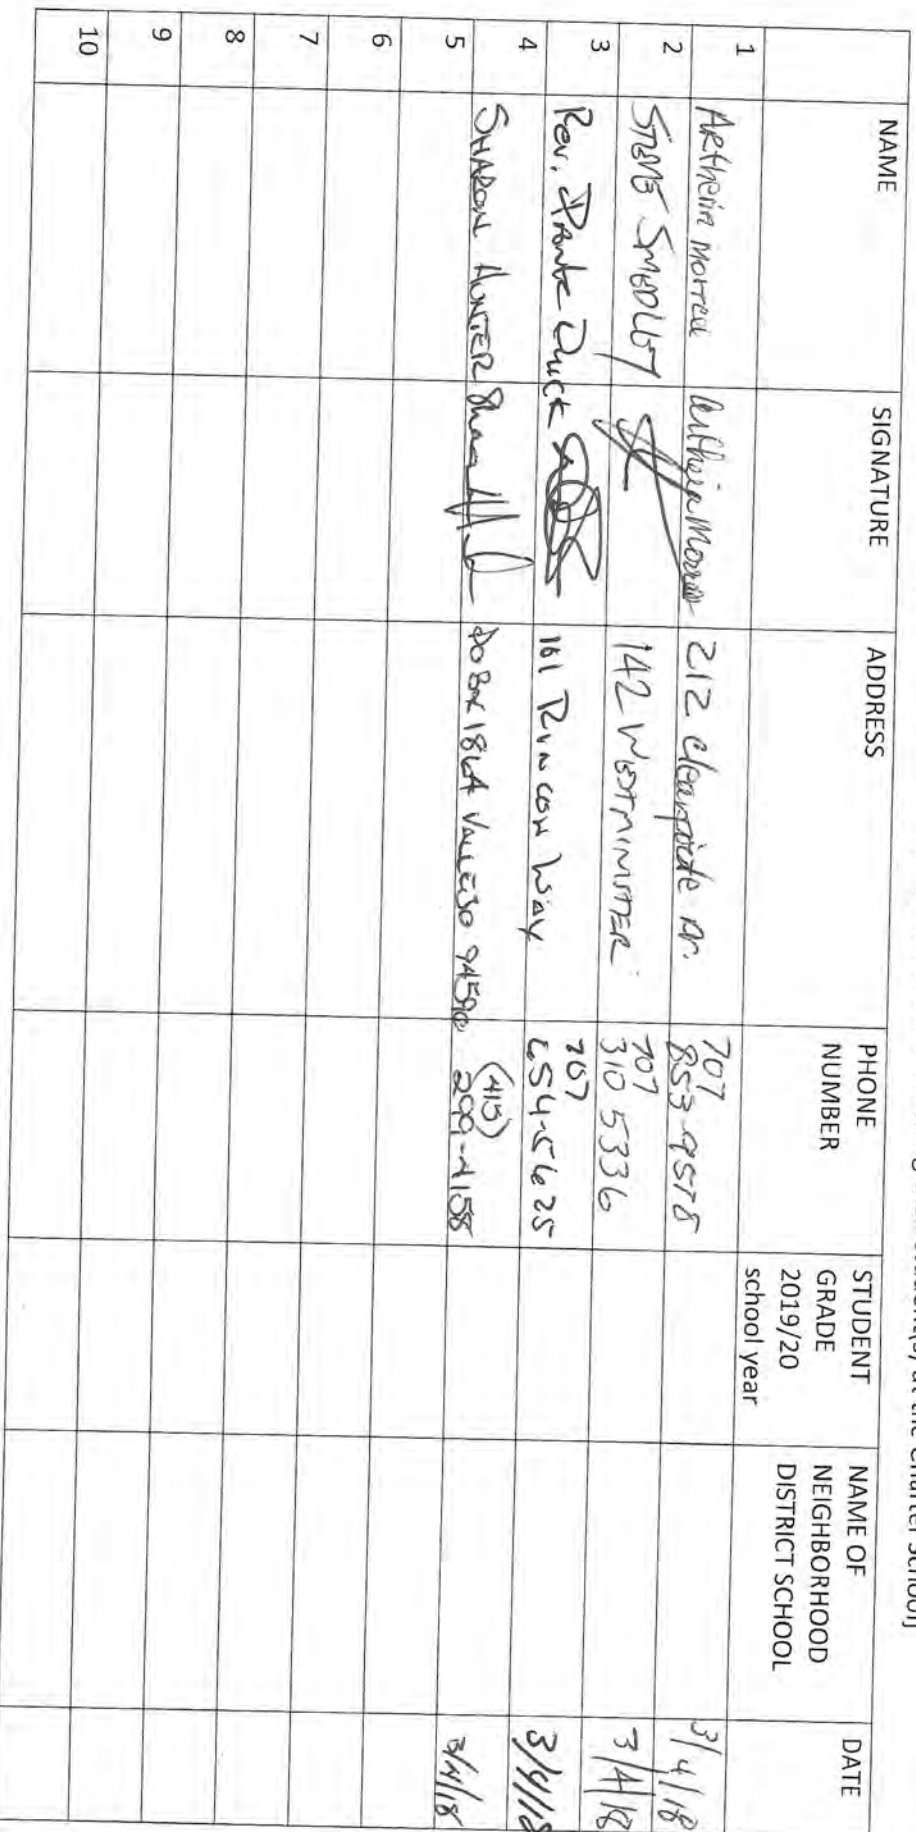 at the Charter School]
NAME SIGNATURE ADDRESS PHONE NUMBER STUDENT GRADE 2019/20 school year NAME OF NEIGHBORHOOD DISTRICT SCHOOL DATE
1 Artheria Morrea 212 Dr. 707 853-9578 3/4/18
2 STEVE SMEDLEY 142 WESTMINISTER 707 310 5336 3/4/18
3 Rev. Dante Quick 161 Rincon Way 707 654-5625 3/4/18
4 SHARON HUNTER PO Box 1864 VALLEJO 94590 (415) 299-4158 3/4/18
5
6
7
8
9
10